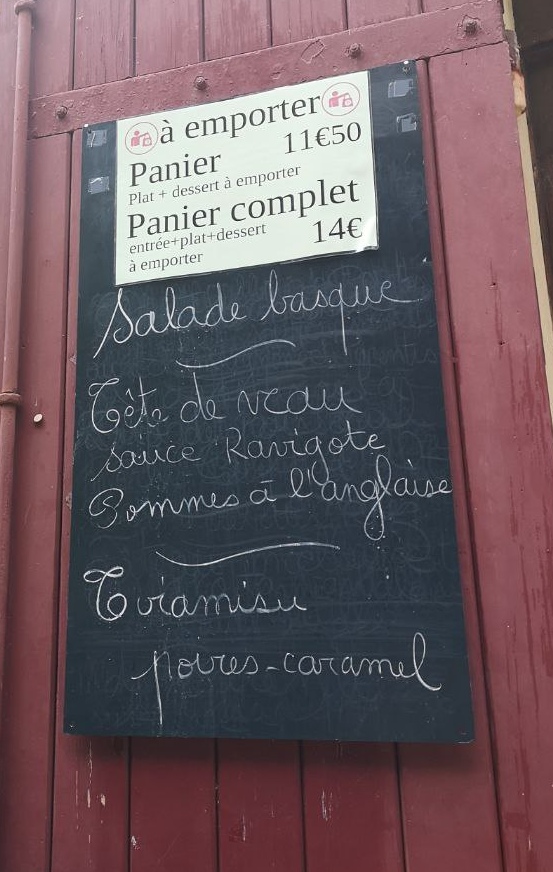 à emporter
Panier 11€50
Plat + dessert à emporter
Panier complet
entrée+plat+dessert 14€
à emporter
Salade basque
Tête de veau
sauce Ravigote
Pommes à l'anglaise
Tiramisu
poires-caramel